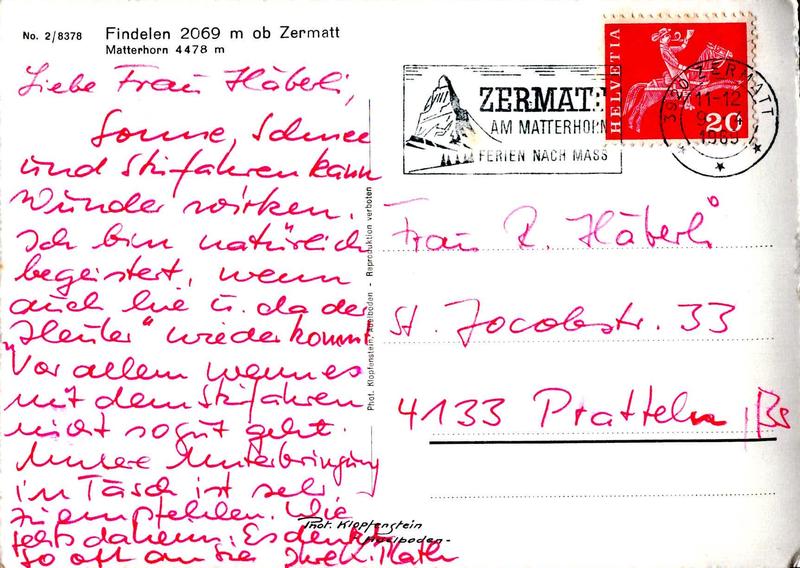 No. 2/8378
Findelen 2069 m ob Zermatt
Matterhorn 4478 m
Liebe Frau Häberli,
Sonne, Schnee
und Skifahren kann
Wunder wirken.
Ich bin natürlich
begeistert, wenn
auch hie u. da der
"Heuler" wiederkommt
Vor allem wenn es
mit dem Skifahren
nicht so gut geht.
Unsere Unterbringung
in Täsch ist sehr
zu empfehlen. Wie
gehts daheim. Es denkt
so oft an Sie Ihre K. Rath
Phot. Klopfenstein, Adelboden - Reproduktion verboten
Phot. Klopfenstein
Adelboden-
ZERMATT
AM MATTERHORN
FERIEN NACH MASS
HELVETIA
20
3920 ZERMATT
11-12
1969
Frau R. Häberli
St. Jacobstr. 33
4133 Pratteln, BS